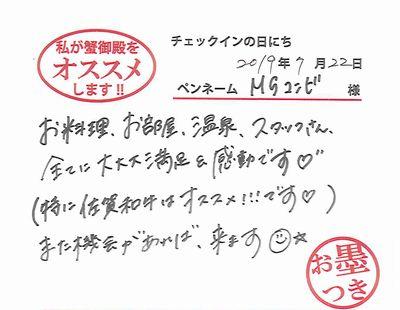 私が蟹御殿を
オススメ
します!!
チェックインの日にち
2019年7月22日
ペンネーム MGコンビ 様
お料理、お部屋、温泉、スタッフさん、
全てに大大大満足&感動です♡”
(特に佐賀和牛はオススメ!!!です♡)
また機会があれば、来ます☺☆
お墨
つき